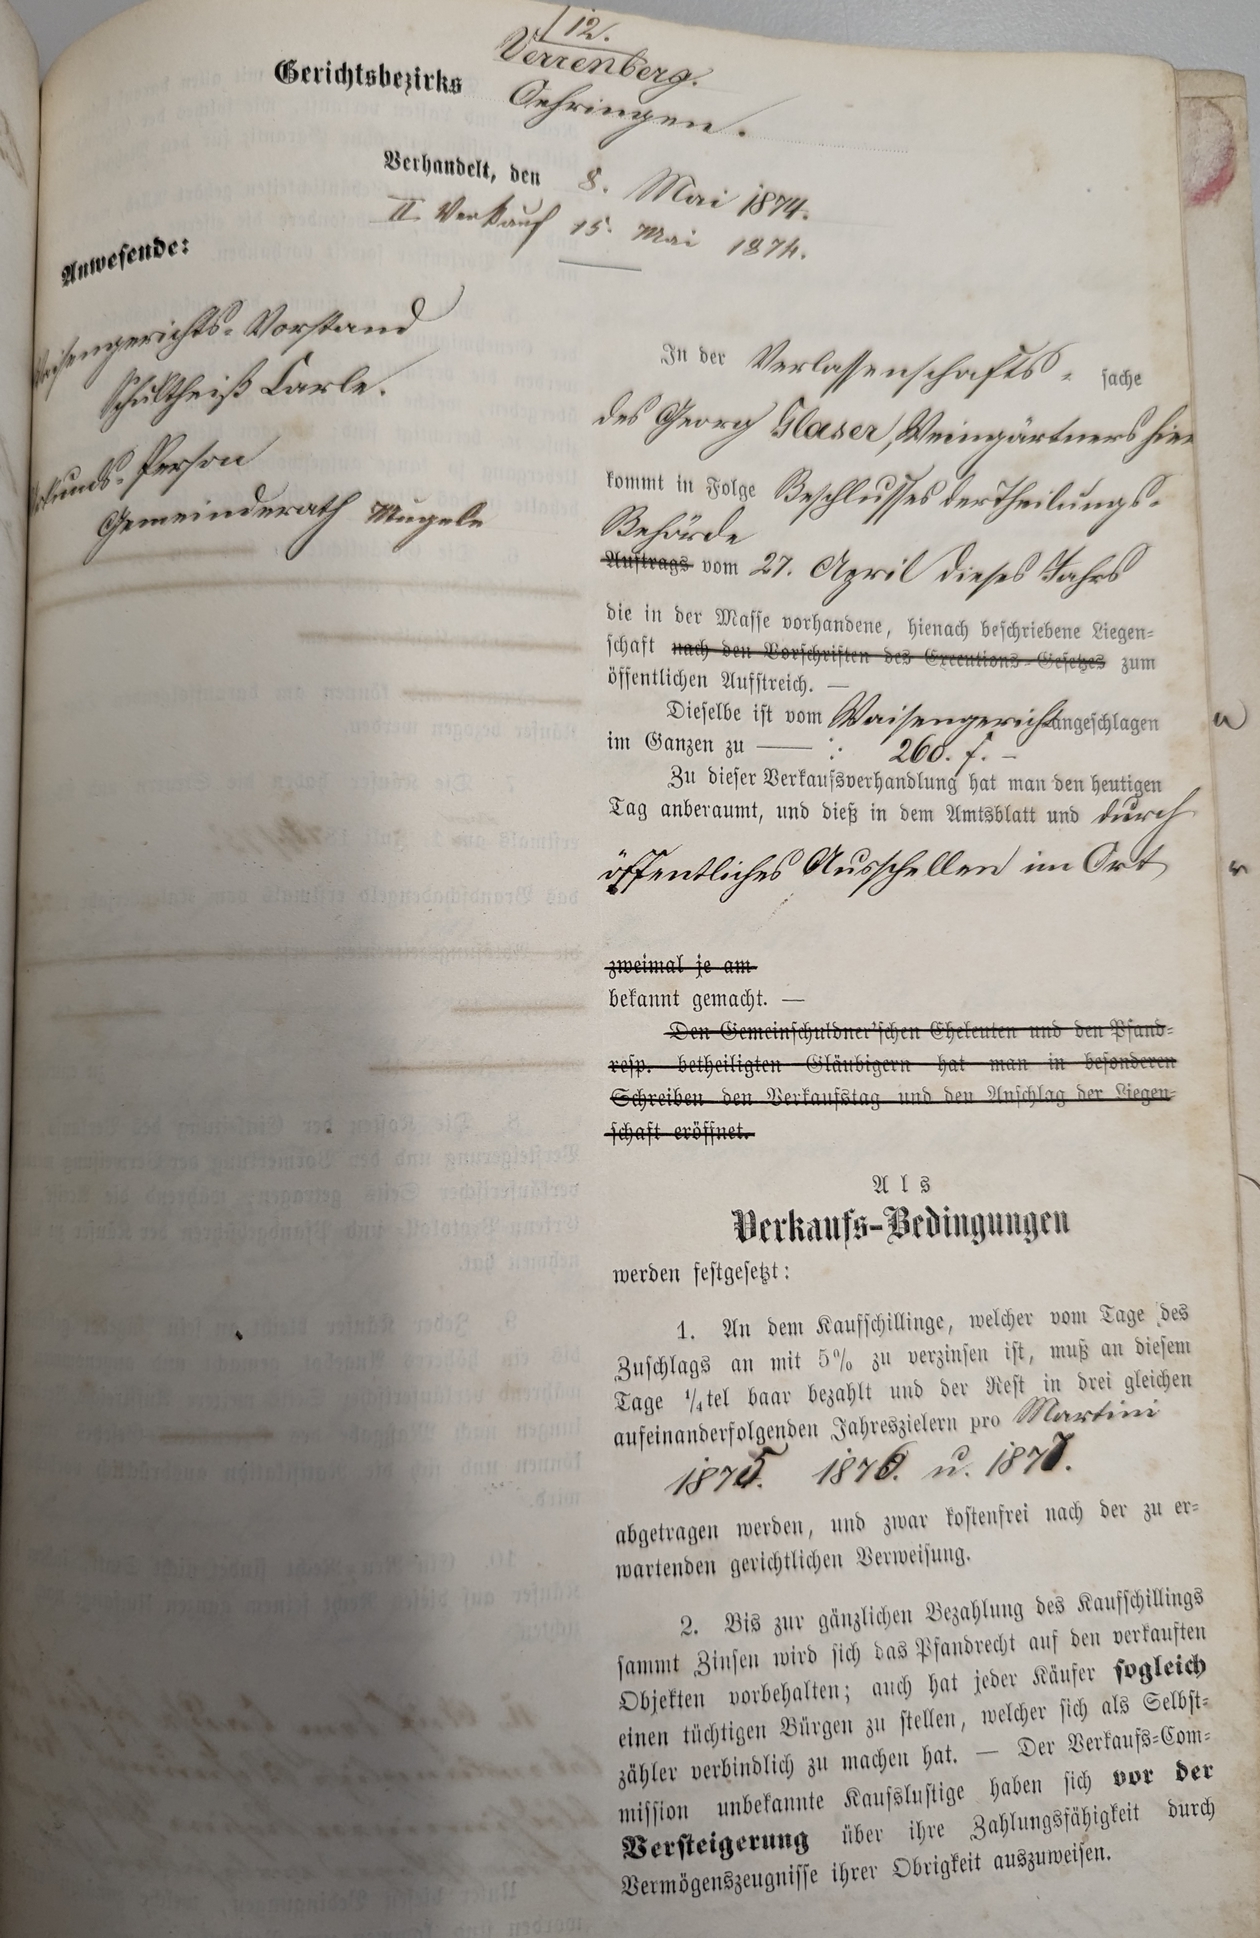 12.
Verrenberg.
Gerichtsbezirks Oehringen.
Verhandelt, den 8. Mai 1874.
II. Verkauf 15. Mai 1874.
Anwesende:
Waisengerichts-Vorstand
Schultheiß Carle.
Urkunds-Person
Gemeinderath Mugele
In der Verlassenschafts-sache
des Georg Glaser, Weingärtners hier
kommt in Folge Beschlusses der Theilungs-
Behörde
Auftrags vom 27. April dieses Jahrs
die in der Masse vorhandene, hienach beschriebene Liegen-
schaft nach den Vorschriften des Executions-Gesetzes zum
öffentlichen Aufstreich. —
Dieselbe ist vom Waisengericht angeschlagen
im Ganzen zu — : 260. f. -
Zu dieser Verkaufsverhandlung hat man den heutigen
Tag anberaumt, und dieß in dem Amtsblatt und durch
öffentliches Ausschellen im Ort
zweimal je am
bekannt gemacht. —
Den Gemeinschuldner'schen Eheleuten und den Pfand-
resp. betheiligten Gläubigern hat man in besonderen
Schreiben den Verkaufstag und den Anschlag der Liegen-
schaft eröffnet.
Als
Verkaufs-Bedingungen
werden festgesetzt:
1. An dem Kaufschillinge, welcher vom Tage des
Zuschlags an mit 5% zu verzinsen ist, muß an diesem
Tage 1/4tel baar bezahlt und der Rest in drei gleichen
aufeinanderfolgenden Jahreszielern pro Martini
1875. 1876. u. 1877.
abgetragen werden, und zwar kostenfrei nach der zu er-
wartenden gerichtlichen Verweisung.
2. Bis zur gänzlichen Bezahlung des Kaufschillings
sammt Zinsen wird sich das Pfandrecht auf den verkauften
Objekten vorbehalten; auch hat jeder Käufer sogleich
einen tüchtigen Bürgen zu stellen, welcher sich als Selbst-
zähler verbindlich zu machen hat. — Der Verkaufs-Com-
mission unbekannte Kaufslustige haben sich vor der
Versteigerung über ihre Zahlungsfähigkeit durch
Vermögenszeugnisse ihrer Obrigkeit auszuweisen.